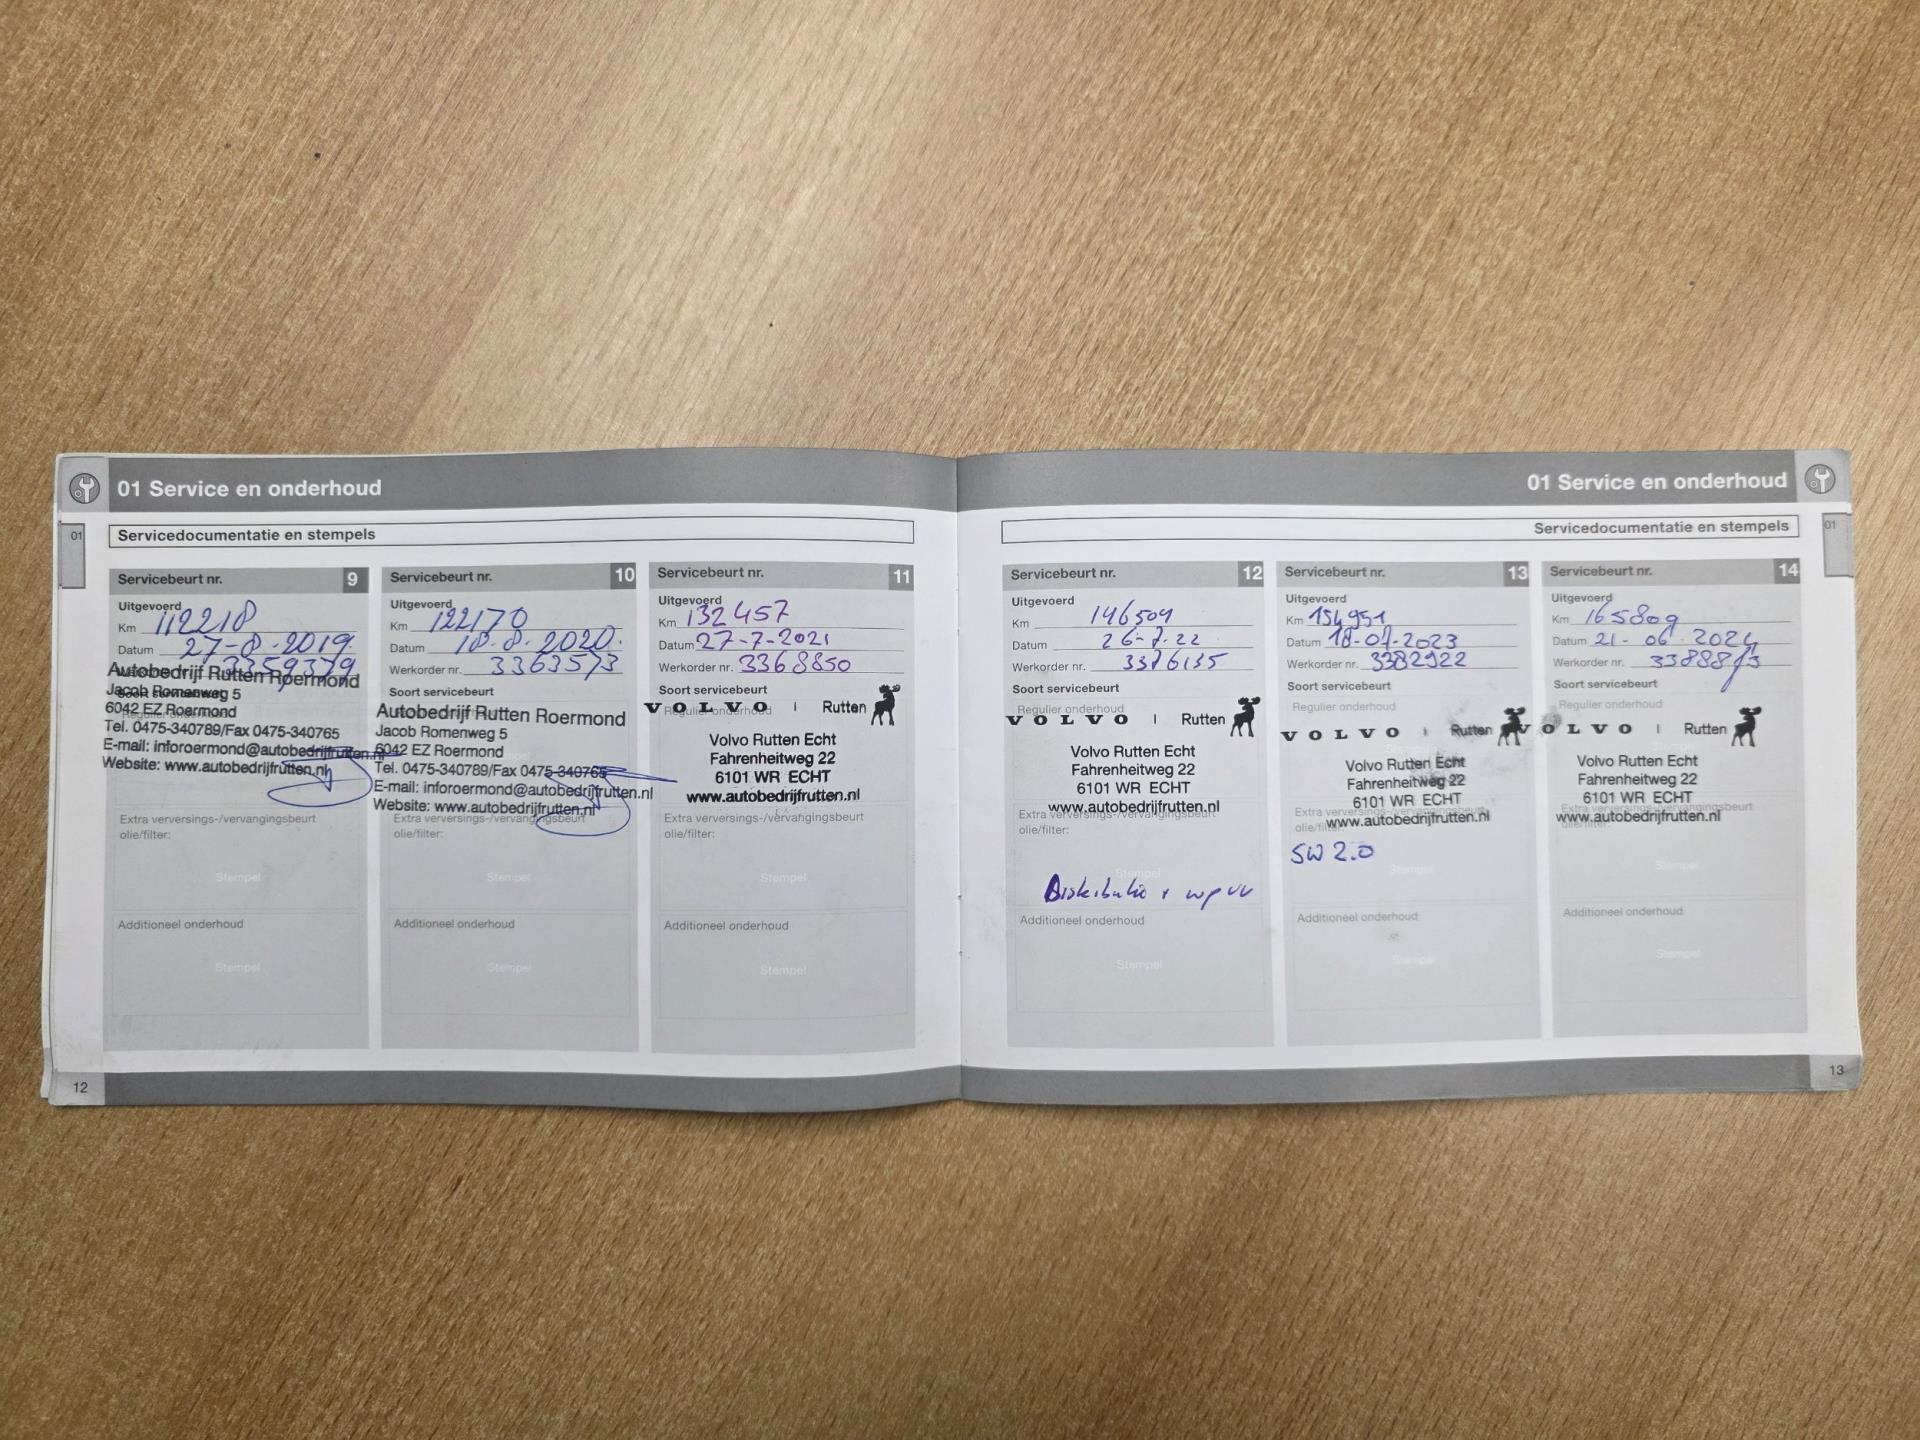 01 Service en onderhoud
01
Servicedocumentatie en stempels
Servicebeurt nr. 9
Uitgevoerd
Km 112218
Datum 27-8-2019
3359379
Autobedrijf Rutten Roermond
Jacob Romenweg 5
6042 EZ Roermond
Tel. 0475-340789/Fax 0475-340765
E-mail: inforoermond@autobedrijfrutten.nl
Website: www.autobedrijfrutten.nl
Extra verversings-/vervangingsbeurt
olie/filter:
Stempel
Additioneel onderhoud
Stempel
Servicebeurt nr. 10
Uitgevoerd
Km 122170
Datum 18-8-2020
Werkorder nr. 3363573
Soort servicebeurt
Autobedrijf Rutten Roermond
Jacob Romenweg 5
6042 EZ Roermond
Tel. 0475-340789/Fax 0475-340765
E-mail: inforoermond@autobedrijfrutten.nl
Website: www.autobedrijfrutten.nl
Extra verversings-/vervangingsbeurt
olie/filter:
Stempel
Additioneel onderhoud
Stempel
Servicebeurt nr. 11
Uitgevoerd
Km 132457
Datum 27-7-2021
Werkorder nr. 3368850
Soort servicebeurt
Regulier onderhoud
VOLVO | Rutten
Volvo Rutten Echt
Fahrenheitweg 22
6101 WR ECHT
www.autobedrijfrutten.nl
Extra verversings-/vervangingsbeurt
olie/filter:
Stempel
Additioneel onderhoud
Stempel
12
01 Service en onderhoud
01
Servicedocumentatie en stempels
Servicebeurt nr. 12
Uitgevoerd
Km 146509
Datum 26-7-22
Werkorder nr. 3376135
Soort servicebeurt
Regulier onderhoud
VOLVO | Rutten
Volvo Rutten Echt
Fahrenheitweg 22
6101 WR ECHT
www.autobedrijfrutten.nl
Extra verversings-/vervangingsbeurt
olie/filter:
Stempel
Distributie + wp vv
Additioneel onderhoud
Stempel
Servicebeurt nr. 13
Uitgevoerd
Km 154951
Datum 18-07-2023
Werkorder nr. 3382922
Soort servicebeurt
Regulier onderhoud
VOLVO | Rutten
Volvo Rutten Echt
Fahrenheitweg 22
6101 WR ECHT
Extra verversings-/vervangingsbeurt
olie/filter:
www.autobedrijfrutten.nl
SW 2.0
Stempel
Additioneel onderhoud
Stempel
Servicebeurt nr. 14
Uitgevoerd
Km 165809
Datum 21-06-2024
Werkorder nr.
Soort servicebeurt
Regulier onderhoud
VOLVO | Rutten
Volvo Rutten Echt
Fahrenheitweg 22
6101 WR ECHT
Extra verversings-/vervangingsbeurt
www.autobedrijfrutten.nl
olie/filter:
Stempel
Additioneel onderhoud
Stempel
13